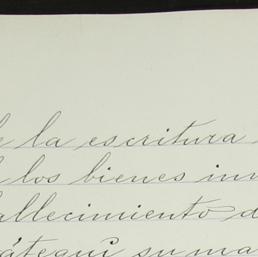 la escritura
los bienes
allecimiento d
átegui su ma